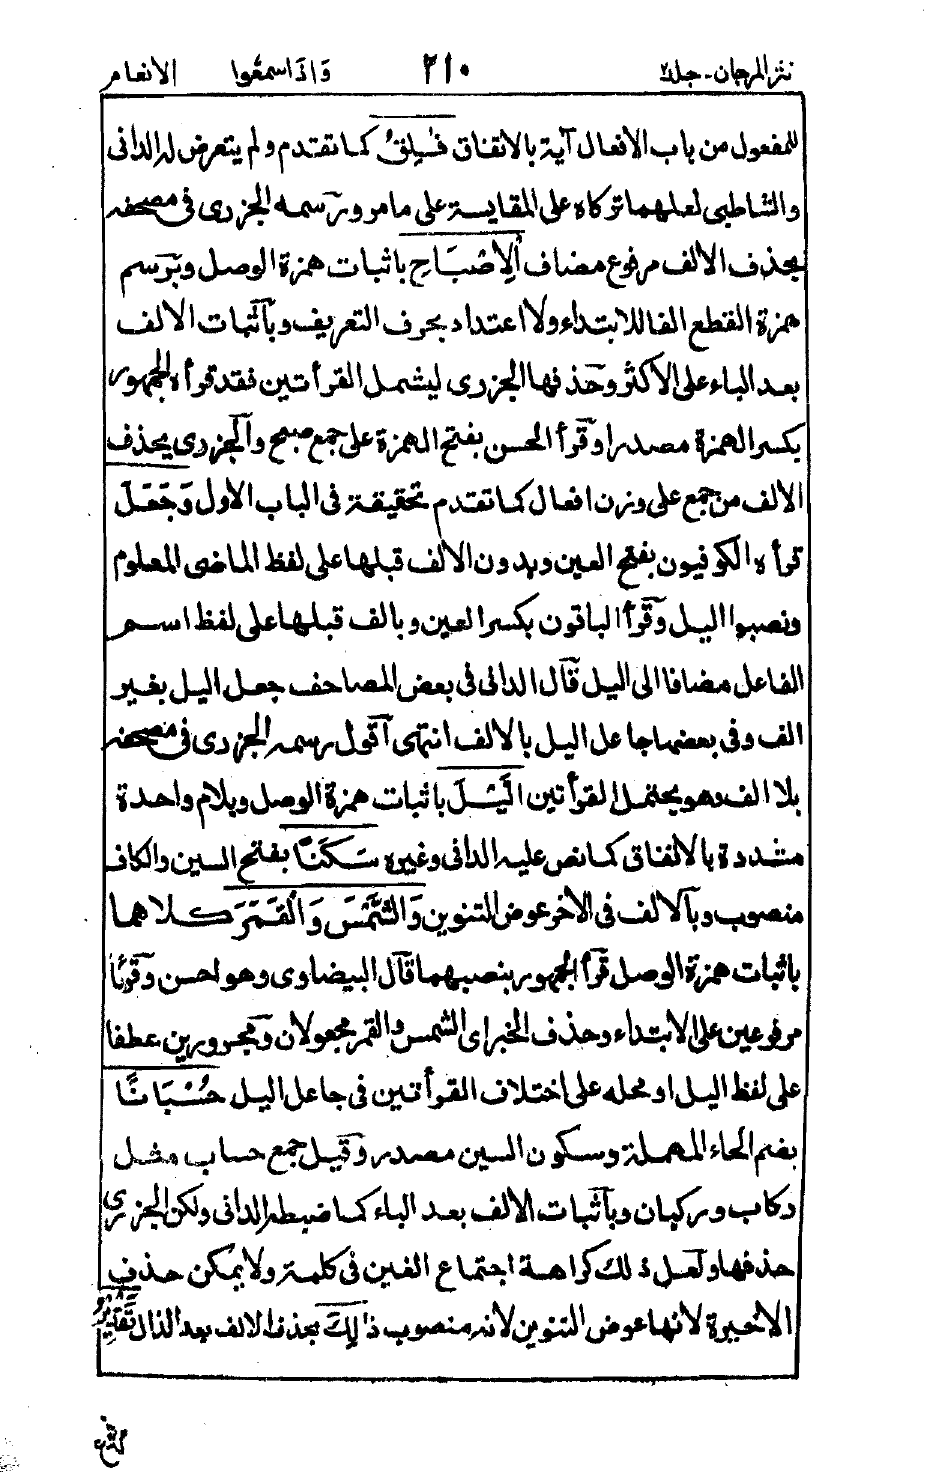 نثر المرجان - جلد٢ ٢١٠ وَاذَا سمعُوا الانعام
للمفعول من باب الافعال آية بالاتفاق فٰلِقُ كما تقدم ولم يتعرض له الدانى
والشاطبى لعلهما تركاه على المقايسة على ما مر ورسمه الجزرى فى مصحفه
بحذف الالف مرفوع مضاف اَلْاِصْبَاحِ باثبات همزة الوصل وبرسم
همزة القطع الفا للابتداء ولا اعتداد بحرف التعريف وباثبات الالف
بعد الباء على الاكثر وحذفها الجزرى ليشمل القرأتين فقد قرأه الجمهور
بكسر الهمزة مصدرا وقرأ الحسن بفتح الهمزة على جمع صبح والجزرى يحذف
الالف من جمع على وزن افعال كما تقدم تحقيقة فى الباب الاول وَجَعَلَ
قرأه الكوفيون بفتح العين وبدون الالف قبلها على لفظ الماضى المعلوم
ونصبوا اليل وقرأ الباقون بكسر العين وبالف قبلها على لفظ اسم
الفاعل مضافا الى اليل قال الدانى فى بعض المصاحف جعل اليل بغير
الف وفى بعضها جاعل اليل بالالف انتهى اقول رسمه الجزرى فى مصحفه
بلا الف وهو يحتمل القرأتين الَّيْلَ باثبات همزة الوصل وبلام واحدة
مشددة بالاتفاق كما نص عليه الدانى وغيره سَكَنًا بفتح السين والكاف
منصوب وبالالف فى الآخر عوض التنوين وَالشَّمْسَ وَالْقَمَرَ كلاهما
باثبات همزة الوصل قرأ الجمهور بنصبهما قال البيضاوى وهو احسن وقرئا
مرفوعين على الابتداء وحذف الخبر اى الشمس والقمر مجعولان ومجرورين عطفا
على لفظ اليل او محله على اختلاف القرأتين فى جاعل اليل حُسْبَانًا
بضم الحاء المهملة وسكون السين مصدر وقيل جمع حساب مثل
ركاب وركبان وباثبات الالف بعد الباء كما ضبطه الدانى ولكن الجزرى
حذفها ولعل ذلك كراهة اجتماع الفين فى كلمة ولا يمكن حذف
الاخيرة لانها عوض التنوين لانه منصوب ذٰلِكَ بحذف الالف بعد الذال تَقْدِيْرُ